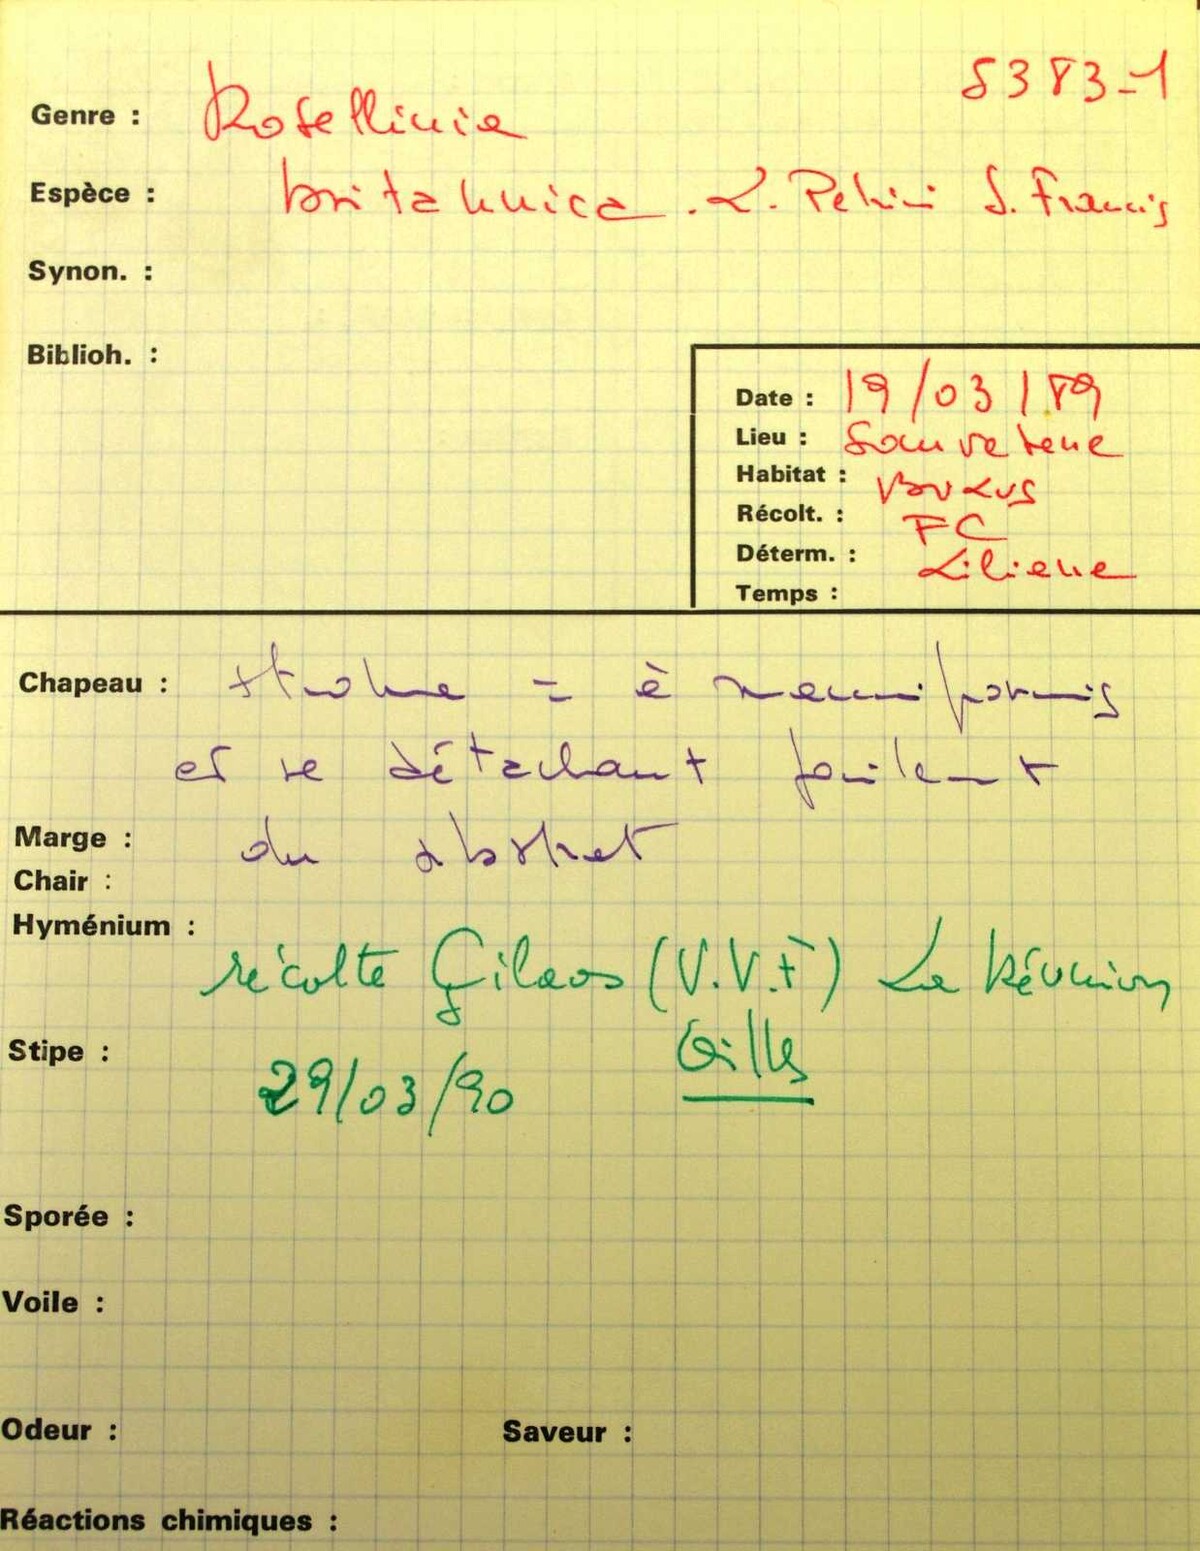 8383-1
Genre : Rosellinia
Espèce : britannica . L. Petrini S. Francis
Synon. :
Biblioh. :
Date : 19/03/89
Lieu : Sauveterre
Habitat : Buxus
Récolt. : FC
Déterm. : Liliane
Temps :
Chapeau : = à
et se détachant facilement
Marge : du
Chair :
Hyménium :
récolte Cilaos (V.V.F) La Réunion
Gilles
Stipe :
29/03/90
Sporée :
Voile :
Odeur : Saveur :
Réactions chimiques :